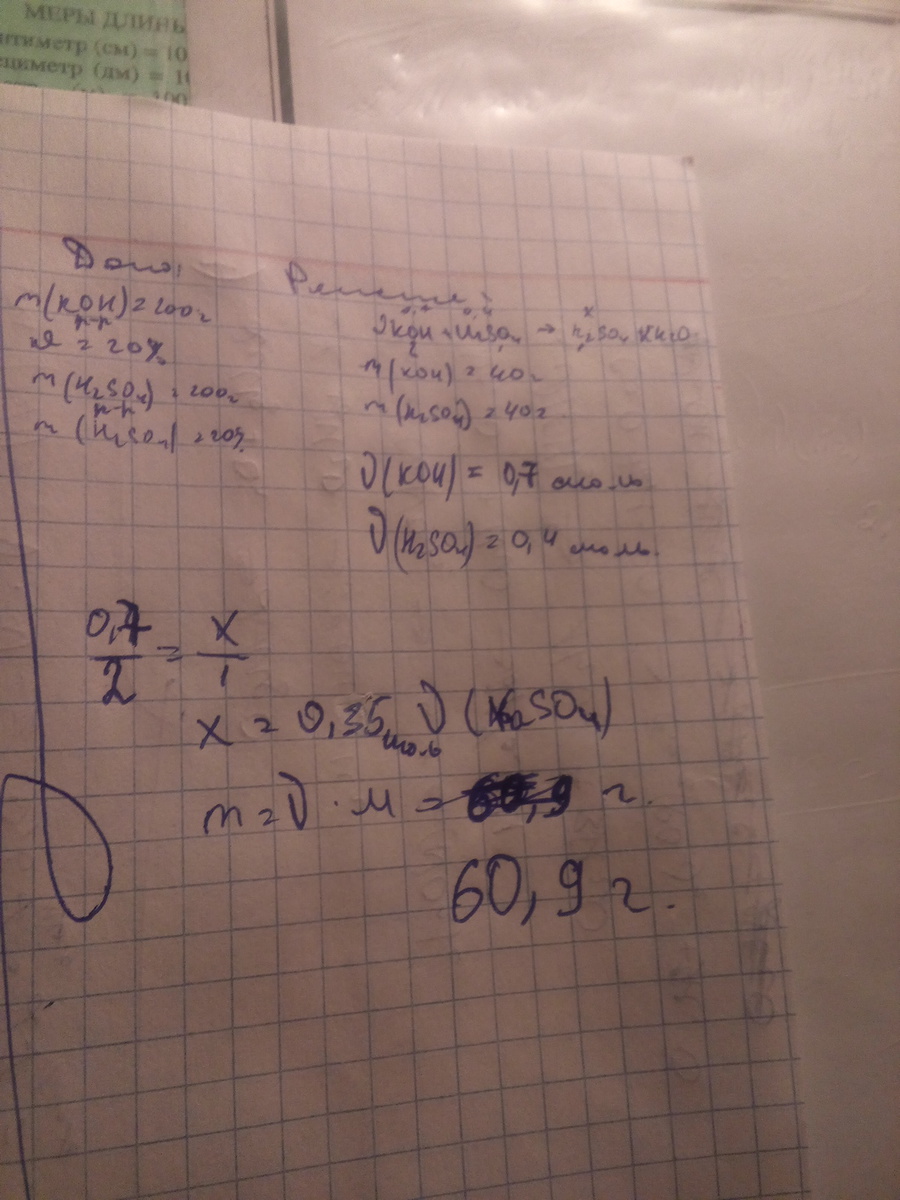 МЕРЫ ДЛИНЫ
нтиметр (см) = 10
циметр (дм) = 1
100
Дано:
m(KOH) = 200г
р-р
= 20%
m(H2SO4) = 200г
р-р
m (H2SO4) = 20%
Решение:
0,7 0,4 x
2KOH + H2SO4 → K2SO4 + H2O
2
m(KOH) = 40г
m(H2SO4) = 40г
ν(KOH) = 0,7 моль
ν(H2SO4) = 0,4 моль.
0,7/2 = x/1
x = 0,35 моль ν (K2SO4)
m = ν · M = 60,9 г.
60,9 г.